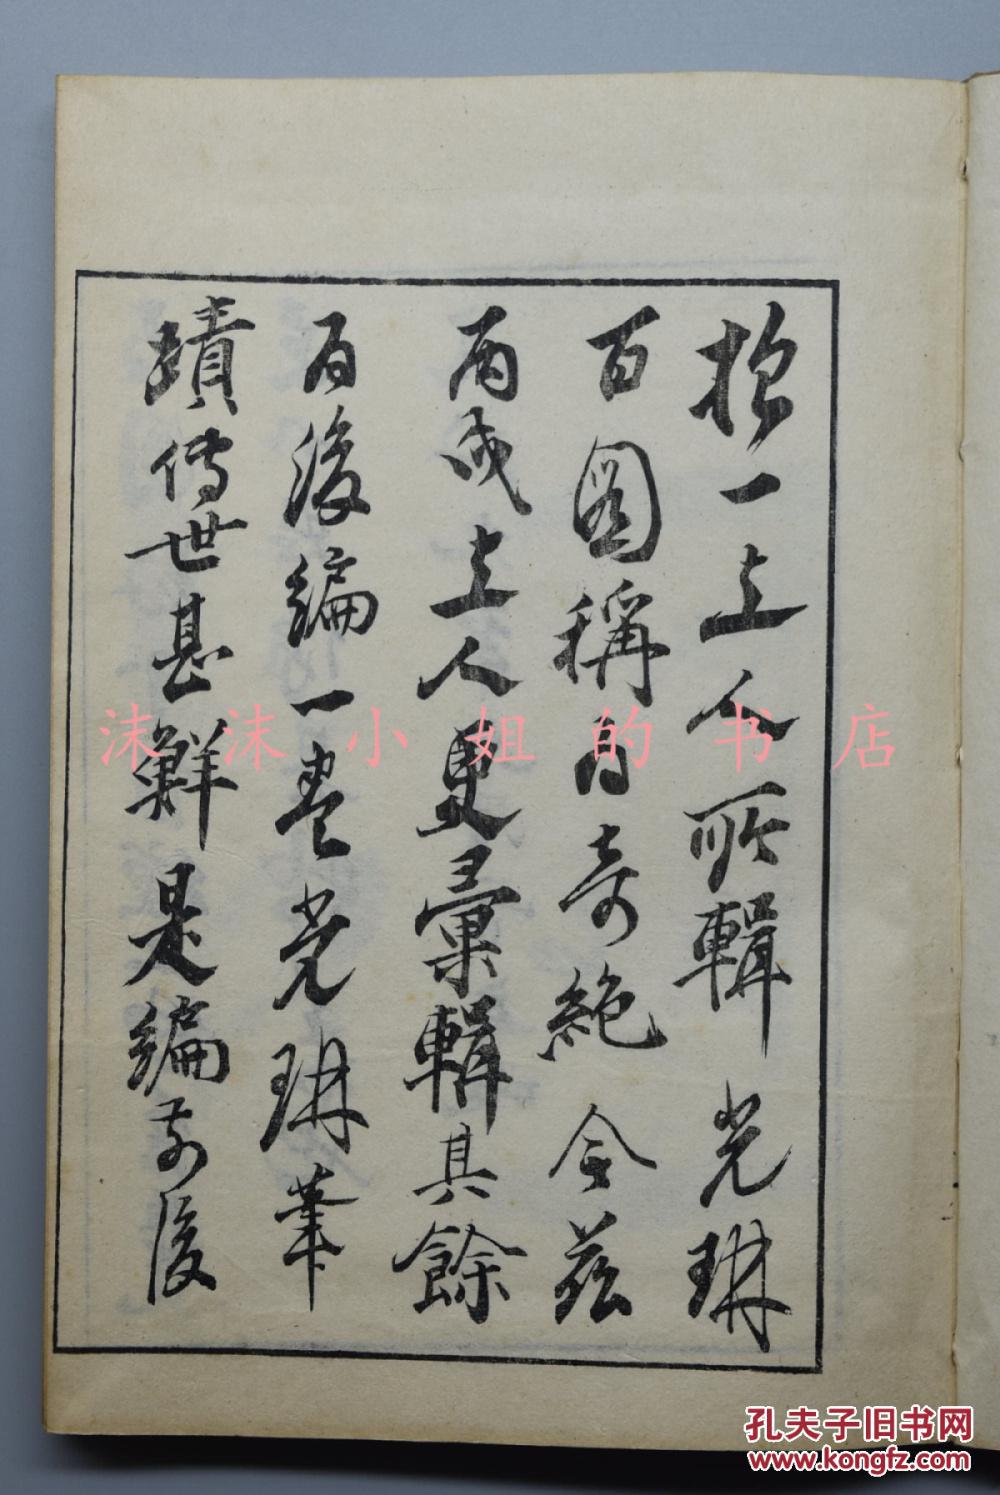 抱一上人所輯光琳
百圖稱為奇絶今茲
丙戌上人更彙輯其餘
為後編一卷光琳筆
蹟傳世甚鮮是編前後
沫沫小姐的书店
孔夫子旧书网
www.kongfz.com